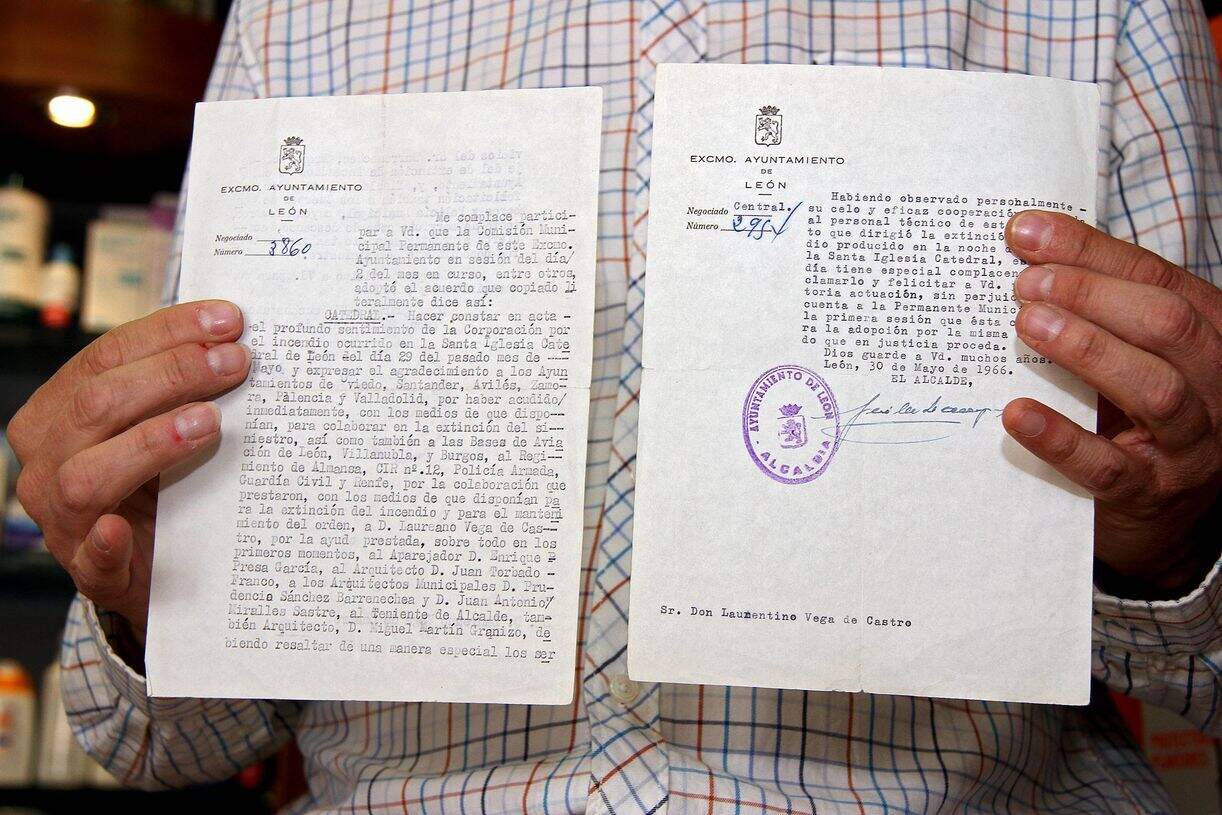 EXCMO. AYUNTAMIENTO
DE
LEÓN
Negociado
Número 3860
Me complace partici-
par a Vd. que la Comisión Muni-
cipal Permanente de este Excmo.
Ayuntamiento en sesión del día/
2 del mes en curso, entre otros,
adoptó el acuerdo que copiado li
teralmente dice así:
CATEDRAL.- Hacer constar en acta -
el profundo sentimiento de la Corporación por
el incendio ocurrido en la Santa Iglesia Cate
dral de León del día 29 del pasado mes de ---
Mayo y expresar el agradecimiento a los Ayun
tamientos de Oviedo, Santander, Avilés, Zamo-
ra, Palencia y Valladolid, por haber acudido/
inmediatamente, con los medios de que dispo-
nían, para colaborar en la extinción del si-
niestro, así como también a las Bases de Avia
ción de León, Villanubla, y Burgos, al Regi-
miento de Almansa, CIR nº.12, Policía Armada,
Guardia Civil y Renfe, por la colaboración que
prestaron, con los medios de que disponían pa
ra la extinción del incendio y para el manteni
miento del orden, a D. Laureano Vega de Cas--
tro, por la ayud prestada, sobre todo en los
primeros momentos, al Aparejador D. Enrique P
Presa García, al Arquitecto D. Juan Torbado -
Franco, a los Arquitectos Municipales D. Pru-
dencio Sánchez Barrenechea y D. Juan Antonio/
Miralles Sastre, al Teniente de Alcalde, tam-
bién Arquitecto, D. Miguel Martín Granizo, de
biendo resaltar de una manera especial los ser
EXCMO. AYUNTAMIENTO
DE
LEÓN
Negociado Central.
Número 295
Habiendo observado personalmente -
su celo y eficaz cooperación
al personal técnico de est
to que dirigió la extinció
dio producido en la noche d
la Santa Iglesia Catedral, es
día tiene especial complacen
clamarlo y felicitar a Vd.
toria actuación, sin perjuic
cuenta a la Permanente Munic
la primera sesión que ésta c
ra la adopción por la misma
do que en justicia proceda.
Dios guarde a Vd. muchos años.
León, 30 de Mayo de 1966.
EL ALCALDE,
AYUNTAMIENTO DE LEON
ALCALDIA
Sr. Don Laurentino Vega de Castro